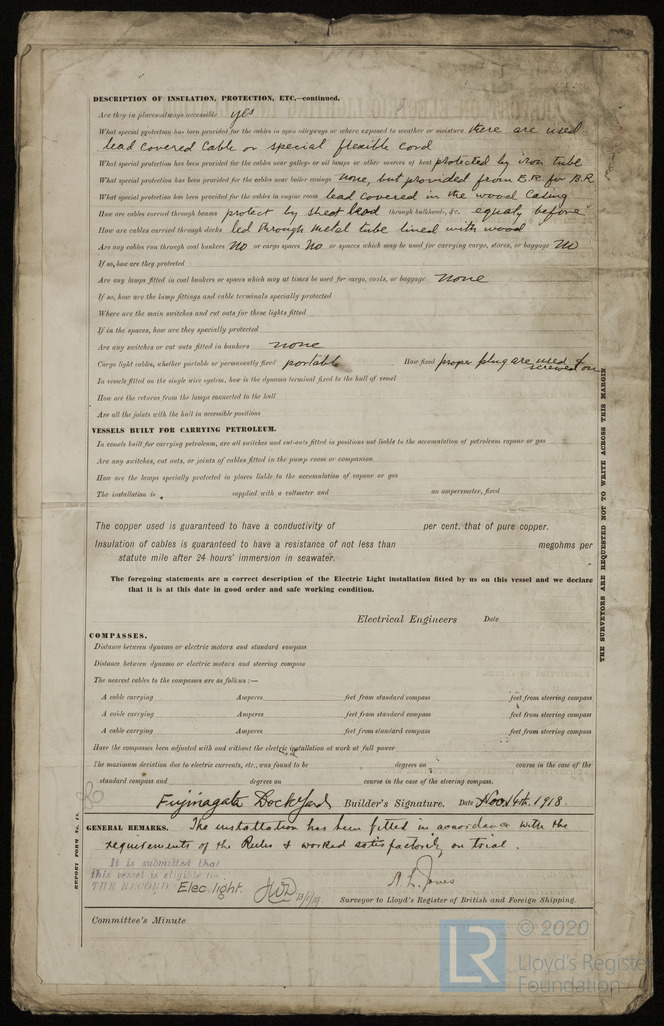 DESCRIPTION OF INSULATION, PROTECTION, ETC.—continued.
Are they in places always accessible yes
What special protection has been provided for the cables in open alleyways or where exposed to weather or moisture there are used
lead covered cable or special flexible cord
What special protection has been provided for the cables near galleys or oil lamps or other sources of heat protected by iron tube
What special protection has been provided for the cables near boiler casings none, but provided from B.R. for B.R
What special protection has been provided for the cables in engine room lead covered in the wood casing
How are cables carried through beams protect by sheet lead through bulkheads, &c. equaly before
How are cables carried through decks led through metal tube lined with wood
Are any cables run through coal bunkers no or cargo spaces no or spaces which may be used for carrying cargo, stores, or baggage no
If so, how are they protected
Are any lamps fitted in coal bunkers or spaces which may at times be used for cargo, coals, or baggage none
If so, how are the lamp fittings and cable terminals specially protected
Where are the main switches and cut outs for these lights fitted
If in the spaces, how are they specially protected
Are any switches or cut outs fitted in bunkers none
Cargo light cables, whether portable or permanently fixed portable How fixed proper plug are used & screwed on
In vessels fitted on the single wire system, how is the dynamo terminal fixed to the hull of vessel
How are the returns from the lamps connected to the hull
Are all the joints with the hull in accessible positions
VESSELS BUILT FOR CARRYING PETROLEUM.
In vessels built for carrying petroleum, are all switches and cut-outs fitted in positions not liable to the accumulation of petroleum vapour or gas
Are any switches, cut outs, or joints of cables fitted in the pump room or companion
How are the lamps specially protected in places liable to the accumulation of vapour or gas
The installation is supplied with a voltmeter and an amperemeter, fixed
The copper used is guaranteed to have a conductivity of per cent. that of pure copper.
Insulation of cables is guaranteed to have a resistance of not less than megohms per
statute mile after 24 hours' immersion in seawater.
The foregoing statements are a correct description of the Electric Light installation fitted by us on this vessel and we declare
that it is at this date in good order and safe working condition.
Electrical Engineers Date
COMPASSES.
Distance between dynamo or electric motors and standard compass
Distance between dynamo or electric motors and steering compass
The nearest cables to the compasses are as follows:—
A cable carrying Amperes feet from standard compass feet from steering compass
A cable carrying Amperes feet from standard compass feet from steering compass
A cable carrying Amperes feet from standard compass feet from steering compass
Have the compasses been adjusted with and without the electric installation at work at full power
The maximum deviation due to electric currents, etc., was found to be degrees on course in the case of the
standard compass and degrees on course in the case of the steering compass.
Fujinagata Dockyard Builder's Signature. Date Nov. 14th, 1918.
GENERAL REMARKS. The installation has been fitted in accordance with the
requirements of the Rules & worked satisfactorily on trial.
It is submitted that
this vessel is eligible for
THE RECORD Elec. light. JWD 13/1/19
A. L. Jones
Surveyor to Lloyd's Register of British and Foreign Shipping.
Committee's Minute
THE SURVEYORS ARE REQUESTED NOT TO WRITE ACROSS THIS MARGIN.
REPORT FORM No.
LR
© 2020
Lloyd's Register
Foundation